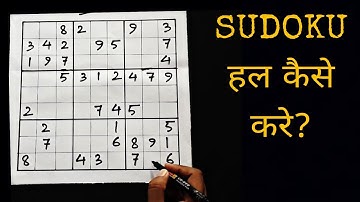 8 2 9 3
3 4 2 9 5 7
1 9 7 4
5 3 1 2 4 7 9
2 7 4 5
2 1 5
7 6 8 9 1
8 4 3 7 6
SUDOKU
हल कैसे
करे?